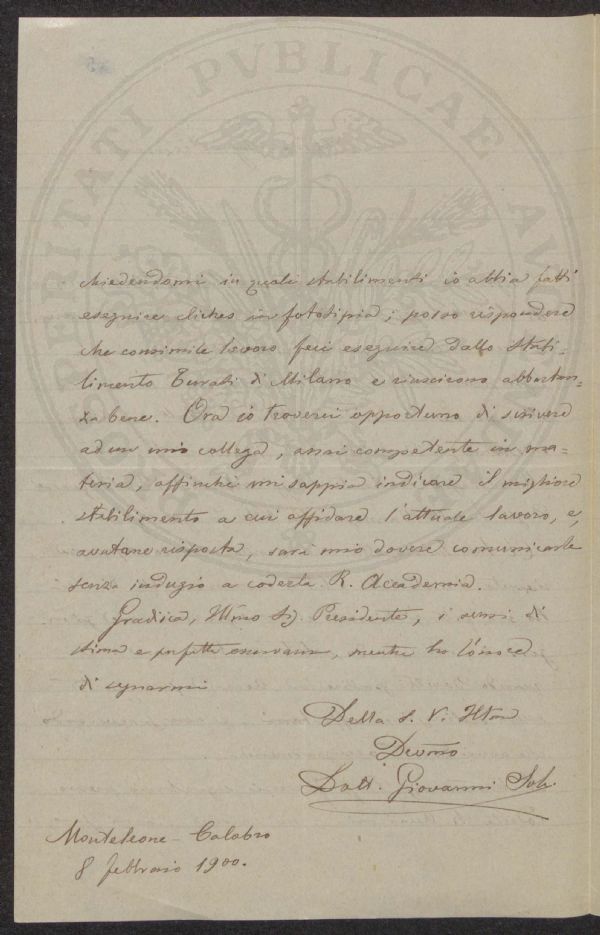 chiedendomi in quali stabilimenti io abbia fatti
eseguire cliches in fototipia; posso rispondere
che consimile lavoro feci eseguire dallo Stabi-
limento Turati di Milano e riuscirono abbastan-
za bene. Ora io troverei opportuno di scrivere
ad un mio collega, assai competente in ma-
teria, affinchè mi sappia indicare il migliore
stabilimento a cui affidare l'attuale lavoro, e,
avutane risposta, sarà mio dovere comunicarle
senza indugio a codesta R. Accademia.
Gradisca, Illmo Sig. Presidente, i sensi di
stima e perfetta osservanza, mentre ho l'onore
di segnarmi
Della S. V. Illma
Devmo
Dott. Giovanni
Monteleone-Calabro
8 febbraio 1900.
PVBLICAE